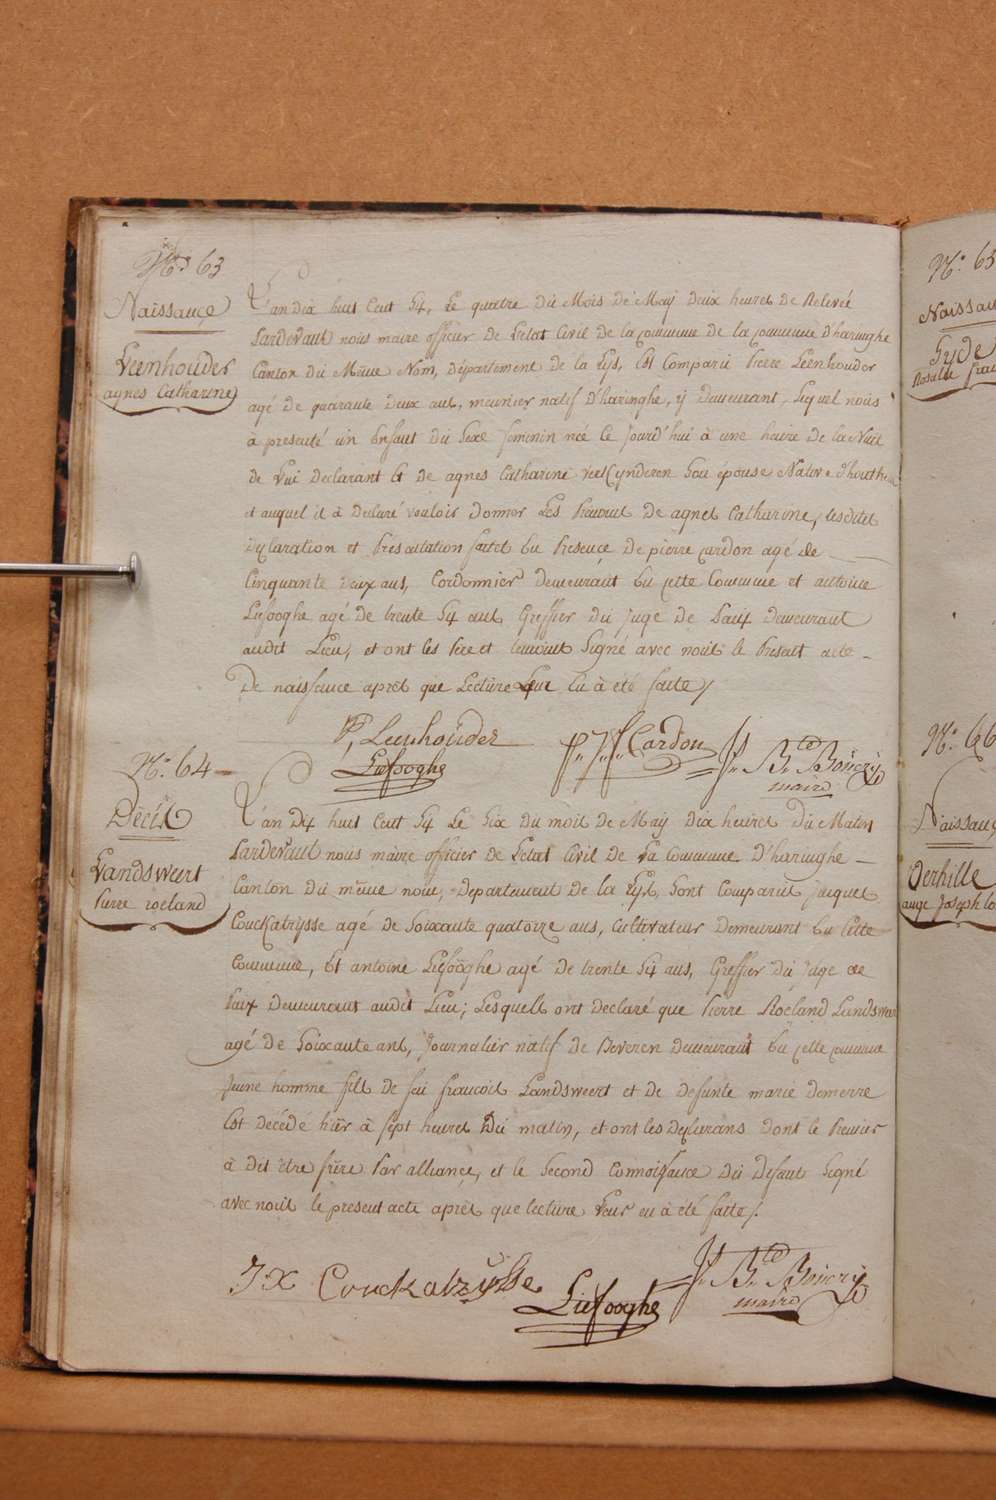 No. 63
Naissance
Leenhouder
agnes Catharine
L'an dix huit Cent Six, Le quatre du Mois de May deux heures de Relevée
Pardevant nous maire officier de L'etat Civil de la commune de la commune d'haringhe
Canton du Même Nom, département de la Lys, Est Comparu Pierre Leenhouder
agé de quarante deux ans, meunier natif d'haringhe, y demeurant, Lequel nous
à presenté un Enfant du Sexe feminin née Ce Jourd'hui à une heure de la Nuit
de Lui declarant Et de agnes Catharine Son épouse Native d'houthem
et auquel il à Declaré vouloir donner Les Prenoms de agnes Catharine, Lesdites
Declaration et Présentation faites En Presence De pierre Cardon agé de
Cinquante deux ans, Cordonnier demeurant En cette Commune et antoine
Liefooghe agé de trente Six ans Greffier du Juge de Paix demeurant
audit Lieu, et ont les Pere et temoins Signé avec nous le Present acte
De naissance après que Lecture Leur En à été faite /
P, Leenhouder
Liefooghe
p. J. f. Cardon
Jn. Bte. Bouciy
maire
No. 64
Décès
Landsweert
Pierre roeland
L'an dix huit Cent Six Le Six du mois de May dix heures Du Matin
Pardevant nous maire officier de L'etat Civil de La Commune D'haringhe
Canton du même nom, Departement de la Lys, Sont Comparus jacques
Couckatrysse agé de Soixante quatorze ans, Cultivateur Demeurant En Cette
Commune, Et antoine Liefooghe agé De trente Six ans, Greffier du Juge de
Paix Demeurant audit Lieu; Lesquels ont declaré que Pierre Roeland Landsweert
agé de Soixante ans, Journalier natif de Beveren demeurant En cette commune
Jeune homme fils de feu francois Landsweert et de defunte marie demerre
Est décédé hier à Sept heures Du matin, et ont les declarans dont le Premier
à dit être frère Par alliance, et le Second Connoissance du Defunt Signé
avec nous le present acte après que lecture Leur en à été faite /.
J x Couckatrysse
Liefooghe
Jn. Bte. Bouciy
maire
No. 65
Naissan
Rosalie
No. 66
Naissanc
Derhille
ange Joseph